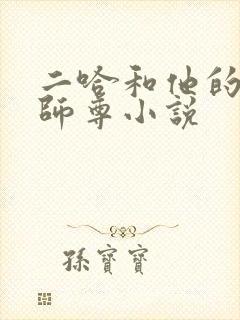 二哈和他的
師尊小説
孫寶寶